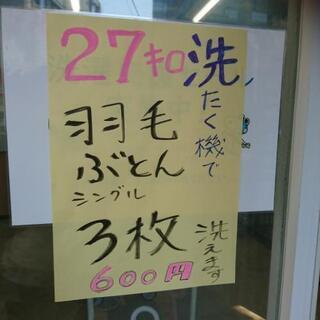 27キロ洗たく機で
羽毛
ぶとん
シングル
3枚洗えます
600円